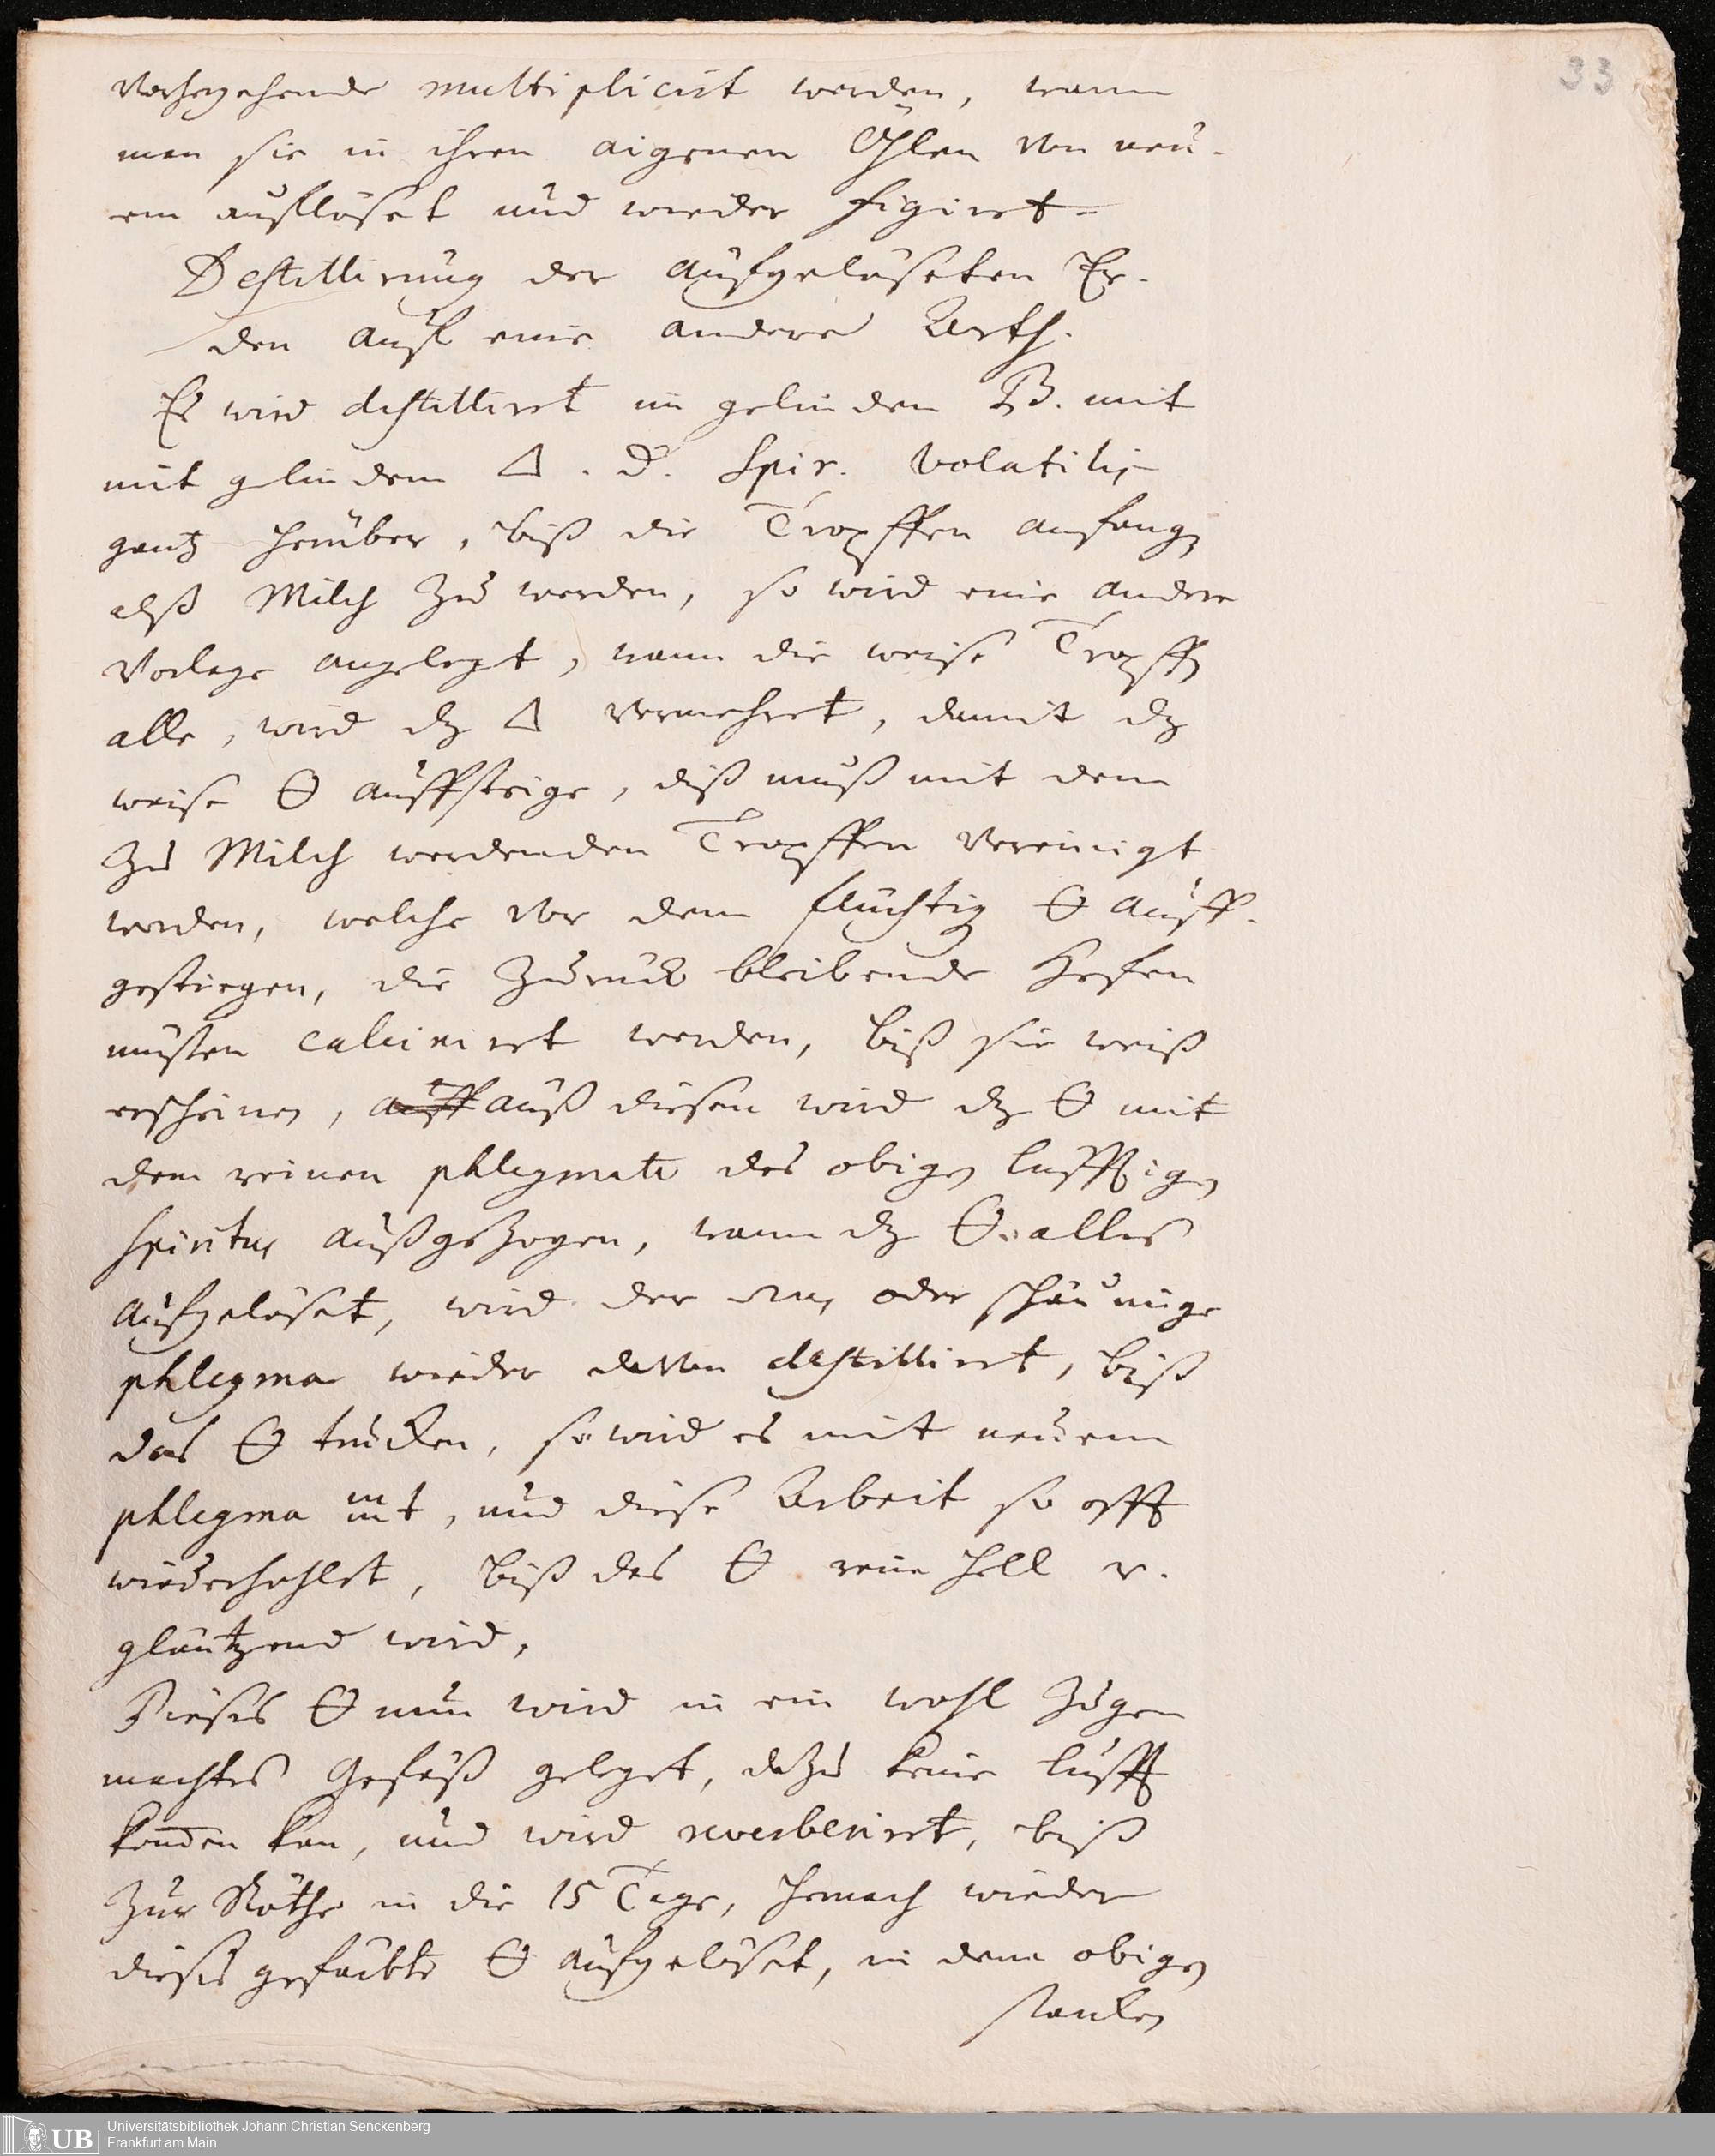 33
Vorhergehende multiplicirt werden, wann
man sie in ihren aigenen Öhlen von neu-
em aufflöset und wieder figiret-
Destillirung der aufgelöseten Er-
den auff eine andere Arth.
Es wird destilliret im gelinden B. mit
mit gelindem △. d. Spir. volatilis
gantz herüber, biß die Tropffen anfangen
alß Milch zu werden, so wird eine andere
Vorlage angelegt, wann die weise Tropffen
alle, wird dz △ vermehret, damit dz
weise 🜔 auffsteige, diß muß mit dem
zu Milch werdenden Tropffen vereinigt
werden, welche vor dem flüchtigen 🜔 auff-
gestiegen, die zurück bleibende Hefen
müssen calciniret werden, biß sie weiß
erscheinen, auff auß diesen wird dz 🜔 mit
dem reinen phlegmate des obigen lufftigen
Spiritus außgezogen, wann dz 🜔 alles
aufgelöset, wird der oder schäumige
phlegma wieder davon destilliret, biß
das 🜔 trucken, so wird es mit neuem
phlegma, und diese Arbeit so offt
wiederhohlet, biß das 🜔 rein hell v.
gläntzend wird,
Dieses 🜔 nun wird in ein wohl zuge
machtes Gefäß geleget, dazu keine Lufft
kommen kan, und wird reverberiret, biß
zur Röthe in die 15 Tage, hernach wieder
dieses gefärbte 🜔 aufgelöset, in dem obigen
starken
Universitätsbibliothek Johann Christian Senckenberg
UB Frankfurt am Main